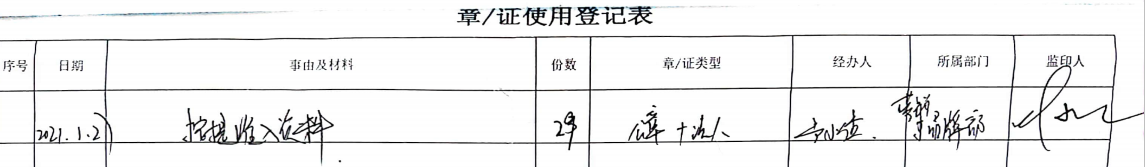 章/证使用登记表
序号 日期 事由及材料 份数 章/证类型 经办人 所属部门 监印人
2021.1.27 按揭准入资料 29 公章+法人 品牌部